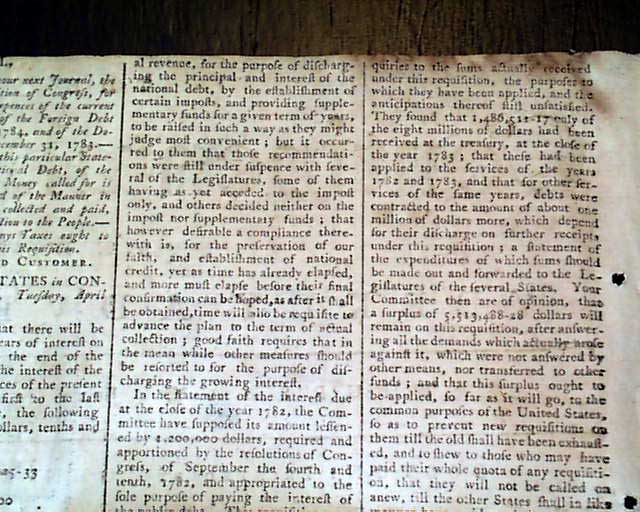 our next Journal, the
tion of Congress, for
xpences of the current
of the Foreign Debt
1784, and of the Do-
cember 31, 1783.—
this particular State-
tional Debt, of the
Money called for is
d of the Manner in
collected and paid,
tion to the People.—
Taxes ought to
is Requisition.
D CUSTOMER.
TATES in CON-
Tuesday, April
at there will be
ears of interest on
the end of the
he interest of the
ces of the present
first to the last
, the following
ollars, tenths and
25-33
00
al revenue, for the purpose of discharg-
ing the principal and interest of the
national debt, by the establishment of
certain imposts, and providing supple-
mentary funds for a given term of years,
to be raised in such a way as they might
judge most convenient; but it occur-
red to them that those recommendati-
ons were still under suspence with seve-
ral of the Legislatures, some of them
having as yet acceded to the impost
only, and others decided neither on the
impost nor supplementary funds; that
however desirable a compliance there-
with is, for the preservation of our
faith, and establishment of national
credit, yet as time has already elapsed,
and more must elapse before their final
confirmation can be hoped, as after it shall
be obtained, time will also be requisite to
advance the plan to the term of actual
collection; good faith requires that in
the mean while other measures should
be resorted to for the purpose of dis-
charging the growing interest.
In the statement of the interest due
at the close of the year 1782, the Com-
mittee have supposed its amount lessen-
ed by 1.200,000 dollars, required and
apportioned by the resolutions of Con-
gress, of September the fourth and
tenth, 1782, and appropriated to the
sole purpose of paying the interest of
the public debt.
quiries to the sums actually received
under this requisition, the purposes to
which they have been applied, and the
anticipations thereof still unsatisfied.
They found that 1,486,511-17 only of
the eight millions of dollars had been
received at the treasury, at the close of
the year 1783; that these had been
applied to the services of the years
1782 and 1783, and that for other ser-
vices of the same years, debts were
contracted to the amount of about one
million of dollars more, which depend
for their discharge on further receipts
under this requisition; a statement of
the expenditures of which sums should
be made out and forwarded to the Le-
gislatures of the several States. Your
Committee then are of opinion, that
a surplus of 5,513,488-28 dollars will
remain on this requisition, after answer-
ing all the demands which actually arose
against it, which were not answered by
other means, nor transferred to other
funds; and that this surplus ought to
be applied, so far as it will go, to the
common purposes of the United States,
so as to prevent new requisitions on
them till the old shall have been exhaust-
ed, and to shew to those who may have
paid their whole quota of any requisiti-
on, that they will not be called on
anew, till the other States shall in like